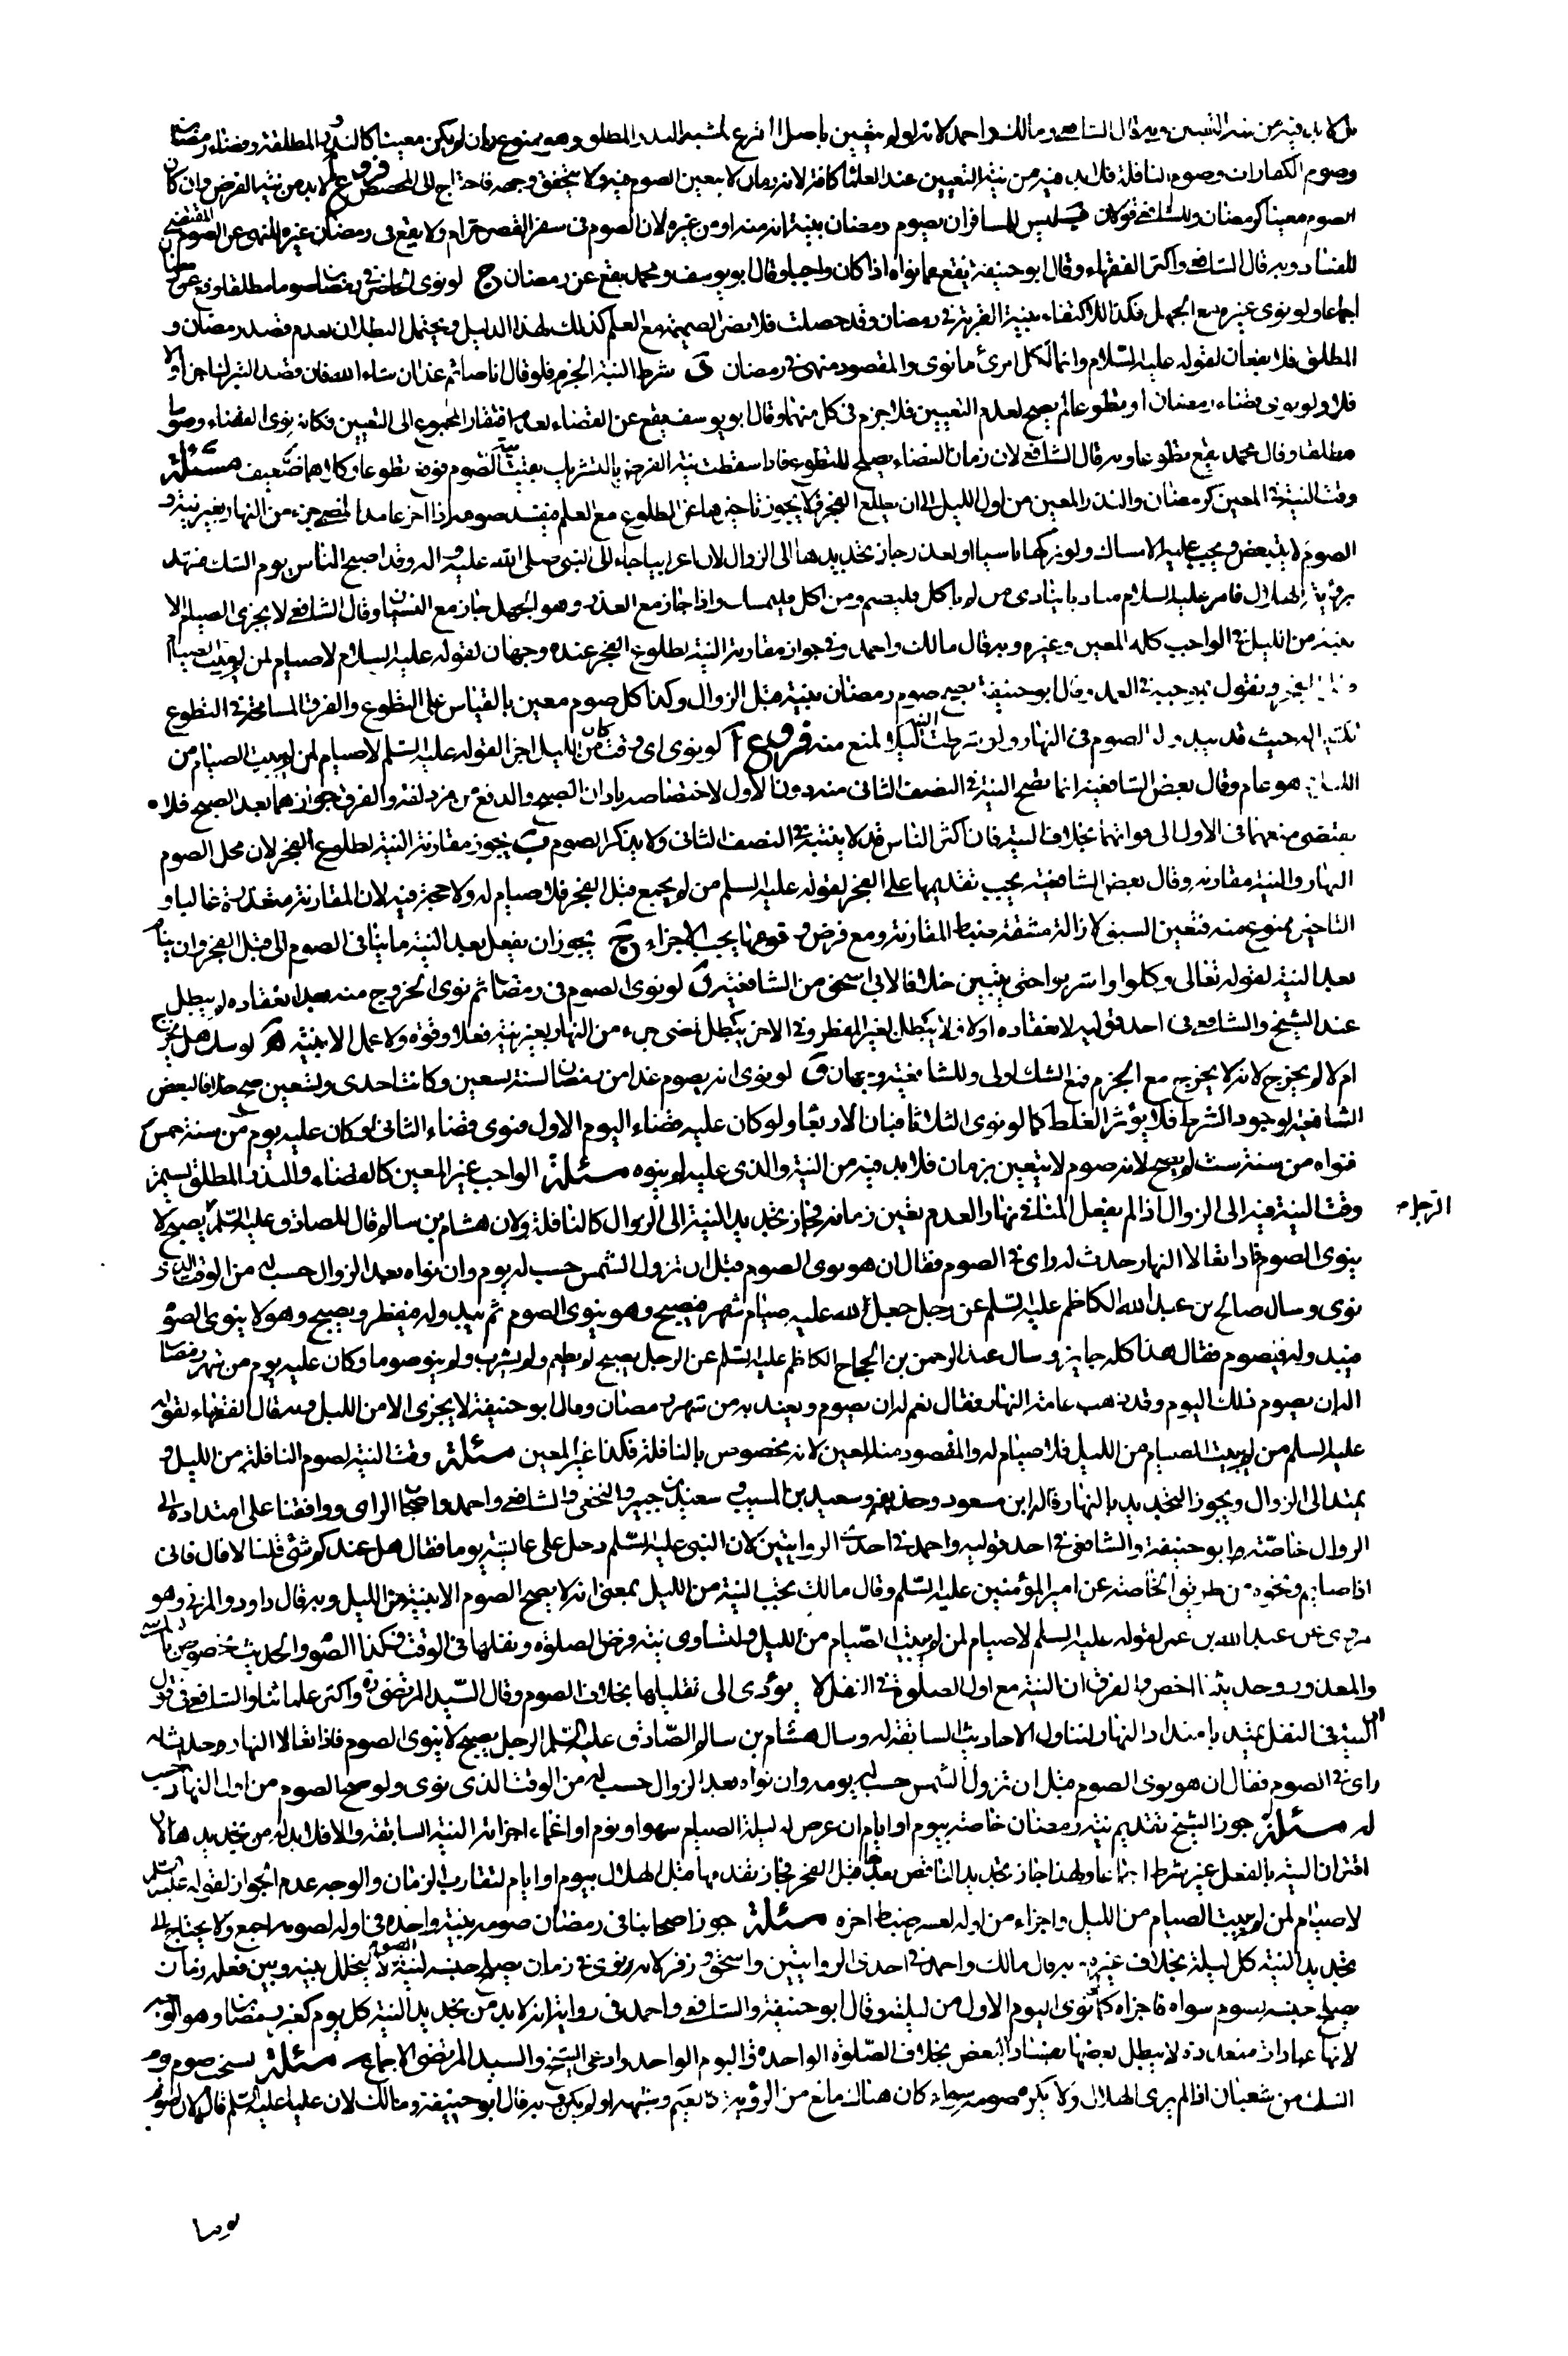 فلا بد فيه من نية التعيين وبه قال الشافعي ومالك واحمد لانه لو لم يتعين باصل الشرع لمشبه النذر المطلق وهو ممنوع وان لم يكن معينا كالنذر المطلقة وقضاء رمضان
وصوم الكفارات وصوم النافلة فلا بد فيه من نية التعيين عند العلماء كافة لانه زمان لا يتعين الصوم فيه ولا يتحقق وجهه فاحتاج الى المخصص فروع آ لا بد من نية الفرض وان كان
الصوم معينا كرمضان وللشافعي قولان ب ليس للمسافر ان يصوم رمضان بنية انه منه او من غيره لان الصوم في سفر القصر حرام ولا يقع في رمضان غيره للنهي عن الصوم المقتضي
للفساد وبه قال الشافعي واكثر الفقهاء وقال ابو حنيفة يقع عما نواه اذا كان واجبا وقال ابو يوسف ومحمد يقع عن رمضان ج لو نوى الحاضر في رمضان صوما مطلقا وقع عن رمضان
اجماعا ولو نوى غيره مع الجهل فكذا للاكتفاء بنية القربة في رمضان وقد حصلت فلا تضر الضميمة مع العلم كذلك لهذا الدليل ويحتمل البطلان لعدم قصد رمضان و
المطلق فلا يقعان لقوله عليه السلام وانما لكل امرئ ما نوى والمقصود منهي في رمضان د شرط النية الجزم فلو قال انا صائم غدا ان شاء الله فان قصد التبرك اجزأ والا
فلا ولو نوى قضاء رمضان او تطوعا لم يصح لعدم التعيين فلا جزم في كل منهما وقال ابو يوسف يقع عن القضاء لعدم افتقار المجموع الى التعيين فكانه نوى القضاء وصوما
مطلقا وقال محمد يقع تطوعا وبه قال الشافعي لان زمان القضاء يصلح للتطوع فاذا سقطت نية الفرض بالتشريك بقيت نية الصوم فوقع تطوعا وكلاهما ضعيف مسئلة
وقت النية في المعين كرمضان والنذر المعين من اول الليل الى ان يطلع الفجر فلا يجوز تاخيرها عن الطلوع مع العلم فيفسد صومه اذا اخر عامدا لمضي جزء من النهار بغير نية و
الصوم لا يتبعض ويجب عليه الامساك ولو تركها ناسيا او لعذر جاز تجديدها الى الزوال لان اعرابيا جاء الى النبي صلى الله عليه واله وقد اصبح الناس يوم الشك فشهد
برؤية الهلال فامر عليه السلام مناديا ينادي من لم ياكل فليصم ومن اكل فليمسك واذا جاز مع العذر وهو الجهل جاز مع النسيان وقال الشافعي لا يجزي الصيام الا
بنية من الليل في الواجب كله المعين وغيره وبه قال مالك واحمد وفي جواز مقارنة النية لطلوع الفجر عنده وجهان لقوله عليه السلام لا صيام لمن لم يبيت الصيام
قبل الفجر ونقول بموجبه في العمد وقال ابو حنيفة يصح صوم رمضان بنية قبل الزوال وكذا كل صوم معين بالقياس على التطوع والفرق المسامحة في التطوع
تكثيرا له حيث قد يبدو له الصوم في النهار ولو شرطت النية ليلا لمنع منه فروع آ لو نوى اي وقت كان من الليل اجزأ لقوله عليه السلم لا صيام لمن لم يبيت الصيام من
الليل وهو عام وقال بعض الشافعية انما تصح النية في النصف الثاني منه دون الاول لاختصاصه باذان الصبح والدفع من مزدلفة والفرق جوازهما بعد الصبح فلا
يقتضي منعهما في الاول الى فواتهما بخلاف النية فان اكثر الناس قد لا ينتبه في النصف الثاني ولا يذكر الصوم ب يجوز مقارنة النية لطلوع الفجر لان محل الصوم
النهار والنية مقارنة وقال بعض الشافعية يجب تقديمها على الفجر لقوله عليه السلم من لم يجمع قبل الفجر فلا صيام له ولا حجة فيه لان المقارنة متعذرة غالبا و
التاخير ممنوع منه فتعين السبق لازالة مشقة ضبط المقارنة ومع فرض وقوعها يجب الاجزاء ج يجوز ان يفعل بعد النية ما ينافي الصوم الى قبل الفجر وان ينام
بعد النية لقوله تعالى وكلوا واشربوا حتى يتبين خلافا لابي اسحق من الشافعية د لو نوى الصوم في رمضان ثم نوى الخروج منه بعد انعقاده لم يبطل
عند الشيخ والشافعي في احد قوليه لانعقاده اولا فلا يبطل لغير المفطر وفي الاخر يبطل لمضي جزء من النهار بغير نية فعلا وقوة ولا عمل الا بنية ه لو شك هل يخرج
ام لا لم يخرج لانه لا يخرج مع الجزم فمع الشك اولى وللشافعية وجهان و لو نوى انه يصوم غدا من رمضان لسنة تسعين وكانت احدى وتسعين صح خلافا لبعض
الشافعية لوجود الشرط فلا يؤثر الغلط كما لو نوى الثلثاء فبان الاربعا ولو كان عليه قضاء اليوم الاول فنوى قضاء الثاني او كان عليه يوم من سنة خمس
فنواه من سنة ست لم يصح لانه صوم لا يتعين بزمان فلا بد فيه من النية والذي عليه لم ينوه مسئلة الواجب غير المعين كالقضاء والنذر المطلق يستمر
وقت النية فيه الى الزوال اذا لم يفعل المنافي نهارا لعدم تعين زمانه فجاز تجديد النية الى الزوال كالنافلة ولان هشام بن سالم قال للصادق عليه السلم الرجل يصبح لا
ينوي الصوم فاذا تعالا النهار حدث له راي في الصوم فقال ان هو نوى الصوم قبل ان تزول الشمس حسب له يوم وان نواه بعد الزوال حسب له من الوقت الذي
نوى وسال صالح بن عبد الله الكاظم عليه السلم عن رجل جعل لله عليه صيام شهر فيصبح وهو ينوي الصوم ثم يبدو له فيفطر ويصبح وهو لا ينوي الصو
فيبدو له فيصوم فقال هذا كله جايز وسال عبد الرحمن بن الحجاج الكاظم عليه السلم عن الرجل يصبح لم يطعم ولم يشرب ولم ينو صوما وكان عليه يوم من شهر رمضان
اله ان يصوم ذلك اليوم وقد ذهب عامة النهار فقال نعم له ان يصوم ويعتد به من شهر رمضان وقال ابو حنيفة لا يجزي الا من الليل وبه قال الفقهاء لقوله
عليه السلم من لم يبيت الصيام من الليل فلا صيام له والمقصود منه المعين لانه مخصوص بالنافلة فكذا غير المعين مسئلة وقت النية لصوم النافلة من الليل و
يمتد الى الزوال ويجوز التجديد بالنهار قاله ابن مسعود وحذيفة وسعيد بن المسيب وسعيد بن جبير والنخعي والشافعي واحمد واصحاب الراى ووافقنا على امتداده الى
الزوال خاصة ابو حنيفة والشافعي في احد قوليه واحمد في احدى الروايتين لان النبي عليه السلم دخل على عايشة يوما فقال هل عندكم شئ قلنا لا قال فاني
اذا صايم ونحوه من طريق الخاصة عن امير المؤمنين عليه السلم وقال مالك يجب النية من الليل بمعنى انه لا يصح الصوم الا بنية من الليل وبه قال داود والمزني وهو
مروي عن عبد الله بن عمر لقوله عليه السلم لا صيام لمن لم يبيت الصيام من الليل ولتساوي نية فرض الصلوة ونفلها في الوقت فكذا الصوم والحديث مخصوص
والعذر وحديثنا اخص والفرق ان النية مع اول الصلوة في النفل لا يؤدي الى تقليلها بخلاف الصوم وقال السيد المرتضى ره واكثر علمائنا والشافعي في قول
ان النية في النفل يمتد بامتداد النهار لتناول الاحاديث السابقة له وسال هشام بن سالم الصادق عليه السلم الرجل يصبح لا ينوي الصوم فاذا تعالا النهار حدث له
راي في الصوم فقال ان هو نوى الصوم قبل ان تزول الشمس حسب له يومه وان نواه بعد الزوال حسب له من الوقت الذي نوى ولو صح الصوم من اول النهار حسب
له مسئلة جوز الشيخ تقديم نية رمضان خاصة بيوم او ايام ان عرض له ليلة الصيام سهو او نوم او اغماء اجزاته النية السابقة والا فلا بد له من تجديدها لان
اقتران النية بالفعل غير شرط اجماعا ولهذا جاز تجديد الناقض بعدها قبل الفجر فجاز تقدمها قبل الهلال بيوم او ايام لتقارب الزمان والوجه عدم الجواز لقوله عليه السلم
لا صيام لمن لم يبيت الصيام من الليل واجزاء من اوله لعسر ضبط اخره مسئلة جوز اصحابنا في رمضان صومه بنية واحدة في اوله لصومه اجمع ولا يحتاج الى
تجديد النية كل ليلة بخلاف غيره وبه قال مالك واحمد في احدى الروايتين واسحق وزفر لانه نوى في زمان يصلح جنسه لنية الصوم لا يتخلل بينه وبين فعله زمان
يصلح جنسه لصوم سواه فاجزاه كما لو نوى اليوم الاول من ليلته وقال ابو حنيفة والشافعي واحمد في رواية انه لا بد من تجديد النية كل يوم كغير رمضان وهو الوجه
لانها عبادات متعددة لا يبطل بعضها بفساد البعض بخلاف الصلوة الواحدة واليوم الواحد وادعى الشيخ والسيد المرتضى الاجماع مسئلة يستحب صوم يوم
الشك من شعبان اذا لم يرى الهلال ولا يكره صومه سواء كان هناك مانع من الرؤية كالغيم وشبهه او لم يكن وبه قال ابو حنيفة ومالك لان عليا عليه السلم قال لان اصوم
يوما